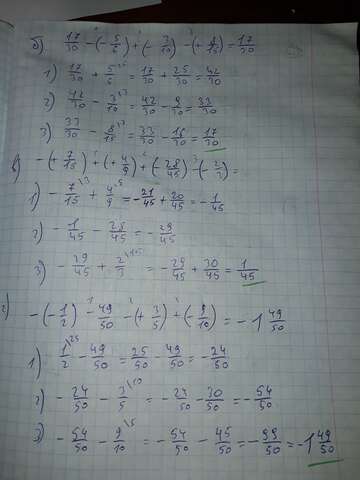 б) 17/30 - (- 5/6) + (- 3/10) - (+ 8/15) = 17/30
1) 17/30 + 5/6 = 17/30 + 25/30 = 42/30
2) 42/30 - 3/10 = 42/30 - 9/30 = 33/30
3) 33/30 - 8/15 = 33/30 - 16/30 = 17/30
в) - (+ 7/15) + (+ 4/9) + (- 28/45) - (- 2/3) =
1) - 7/15 + 4/9 = - 21/45 + 20/45 = - 1/45
2) - 1/45 - 28/45 = - 29/45
3) - 29/45 + 2/3 = - 29/45 + 30/45 = 1/45
г) - (- 1/2) - 49/50 - (+ 3/5) + (- 9/10) = - 1 49/50
1) 1/2 - 49/50 = 25/50 - 49/50 = - 24/50
2) - 24/50 - 3/5 = - 24/50 - 30/50 = - 54/50
3) - 54/50 - 9/10 = - 54/50 - 45/50 = - 99/50 = - 1 49/50